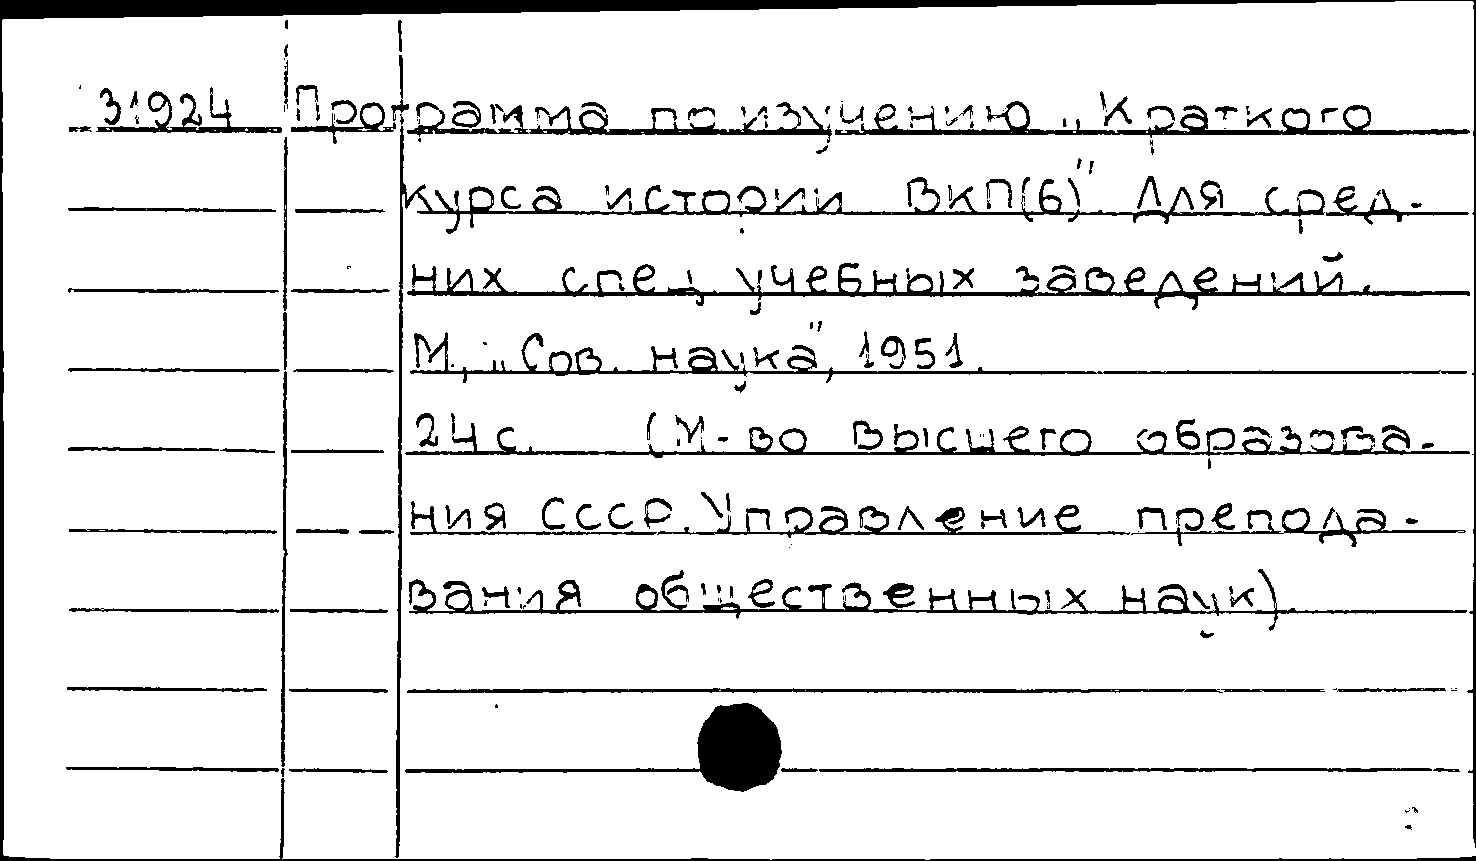 31924 Программа по изучению „Краткого
курса истории ВКП(б)". Для сред-
них спец. учебных заведений.
М., „Сов. наука", 1951.
24 с. (М-во высшего образова-
ния СССР. Управление препода-
вания общественных наук).